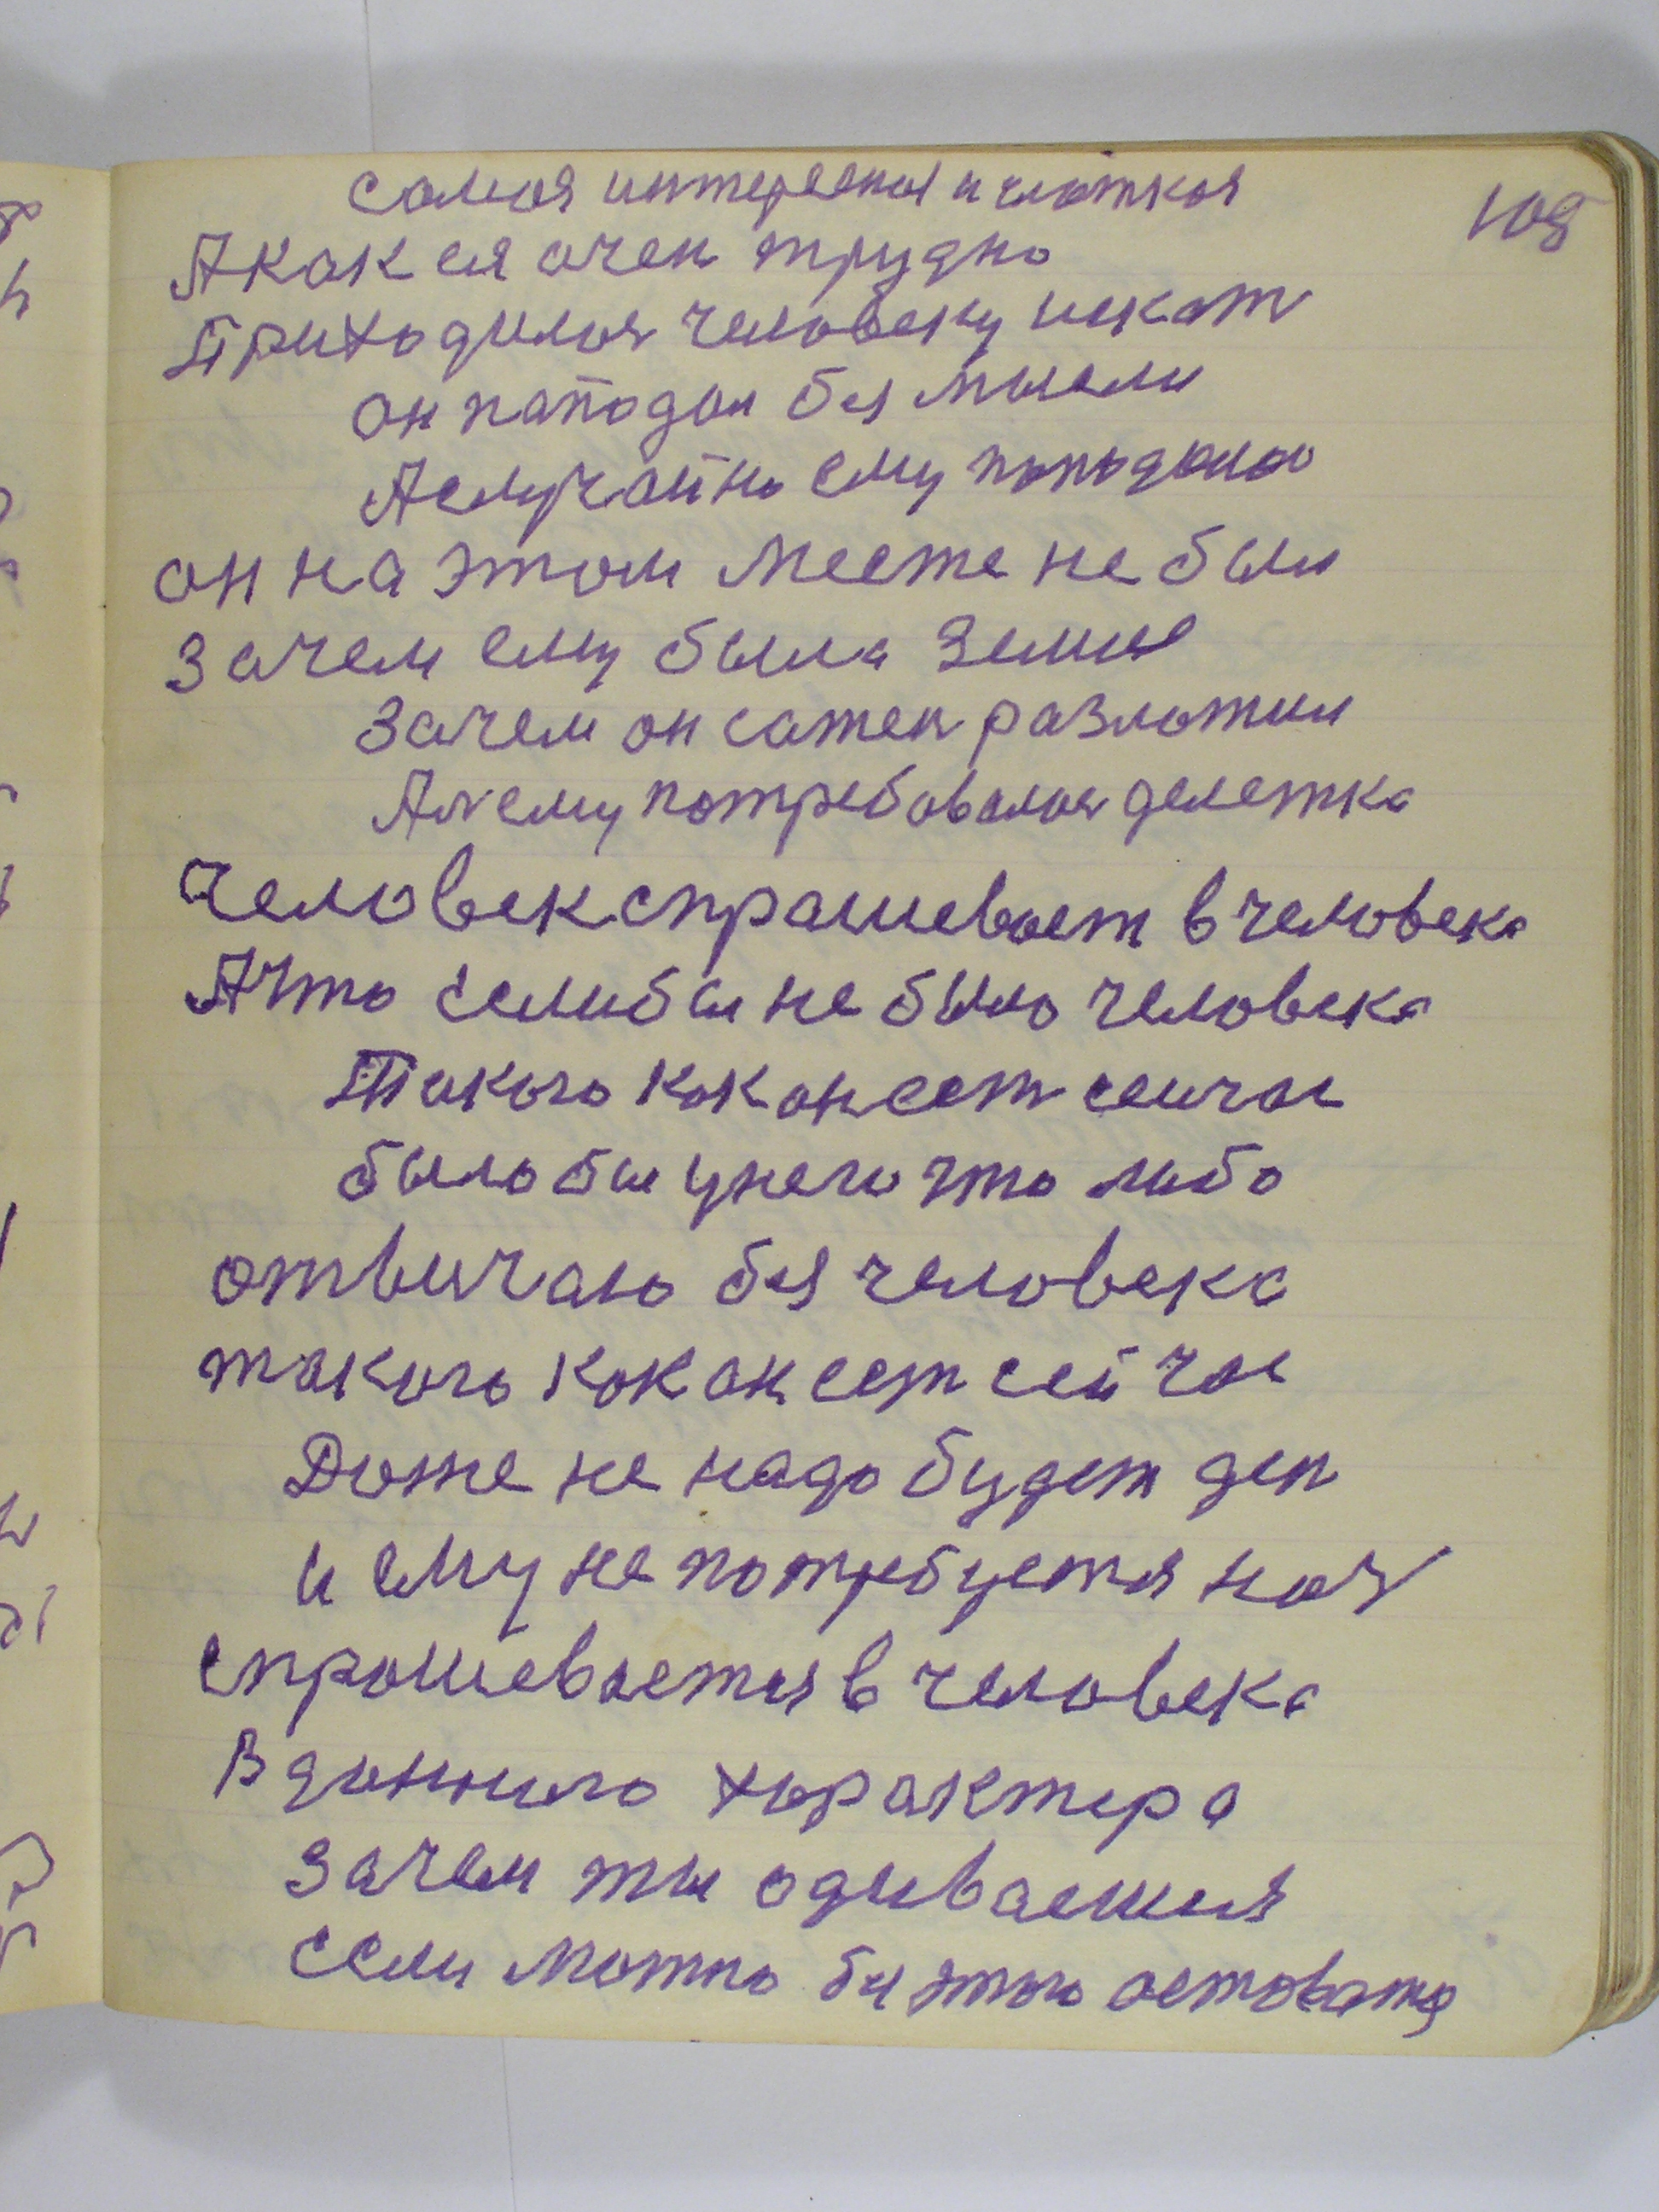 самоя интересноя и члоткоя
108
А как ся очен трудно
Приходилось человеку искат
он нападал без мысли
А случайно ему поподалос
он на этом месте не был
Зачем ему была земля
Зачем он сажен разложил
А к чему потребовалос делетка
Человек спрашевает в человека
А что если бы не было человека
Такого как он сет сейчас
было бы у него что либо
отвичаю без человека
такого как он сет сейчас
Доже не надо будет ден
и ему не потребуется ноч
спрошевается в человека
В данного характера
Зачем ты одиваешся
если можно без этого оставатся